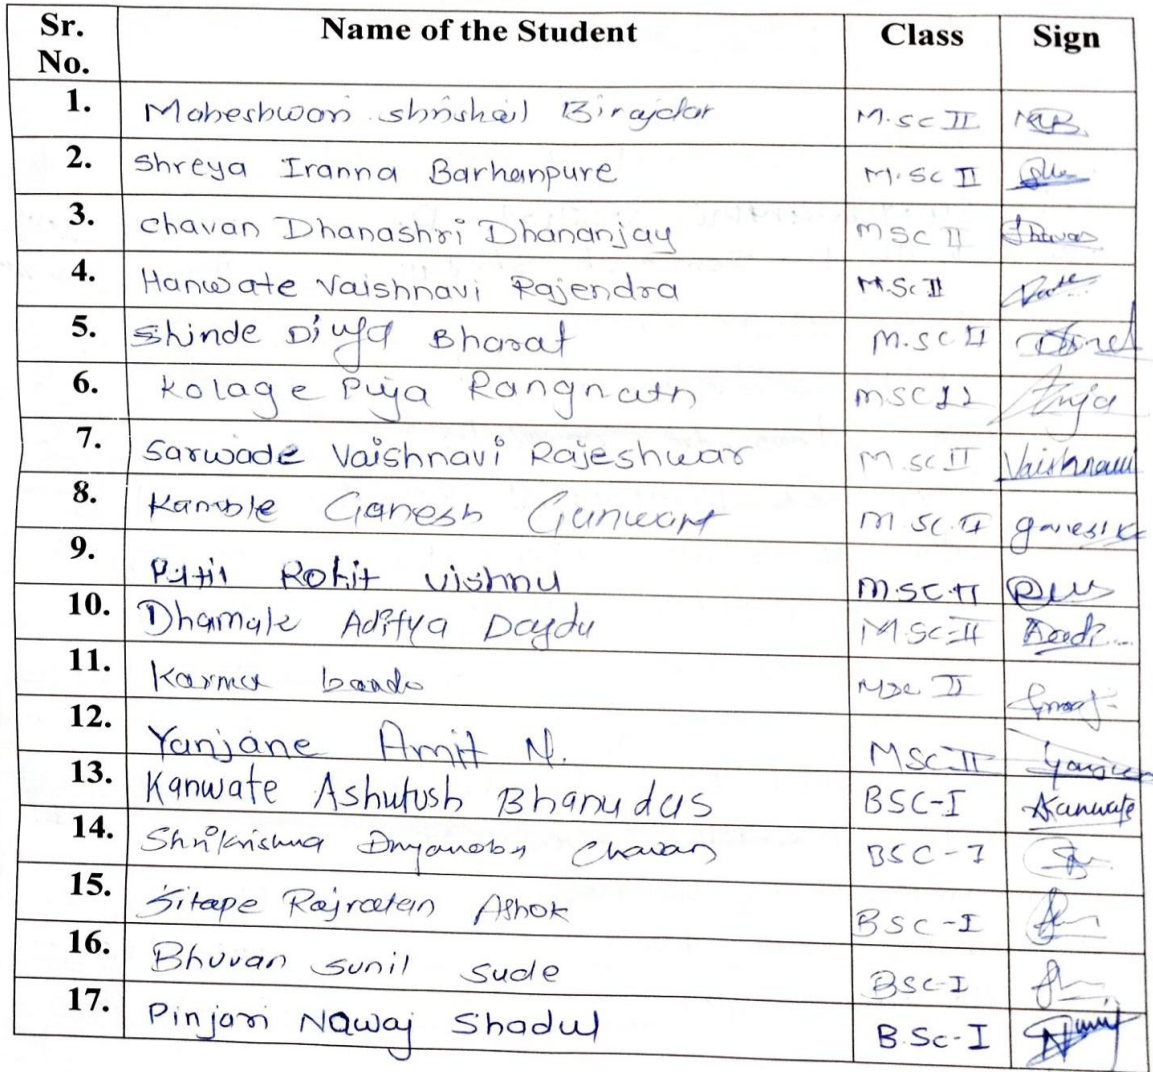 Sr. No. Name of the Student Class Sign
1. Maheshwari shrishail Birajdar M.sc II MSB.
2. Shreya Iranna Barhanpure M.sc II
3. Chavan Dhanashri Dhananjay MSC II Dhavan
4. Hanwate Vaishnavi Rajendra M.Sc II
5. Shinde Divya Bharat M.SC II
6. Kolage Puja Rangnath MSC II Puja
7. Sarwade Vaishnavi Rajeshwar M.SC II Vaishnavi
8. Kamble Ganesh Gunwant M SC II ganesh K
9. Patil Rohit Vishnu M.SC.II
10. Dhamale Aditya Daydu M.SC-II
11. Karmu MSc II
12. Yanjane Amit N. MSC-II
13. Kanwate Ashutosh Bhanudas BSC-I AKanwate
14. Shrikrishna Dnyanoba Chavan BSC-I
15. Sitape Rajratan Ashok BSC-I
16. Bhuvan Sunil Sude BSC-I
17. Pinjari Nawaj Shadul B.Sc-I